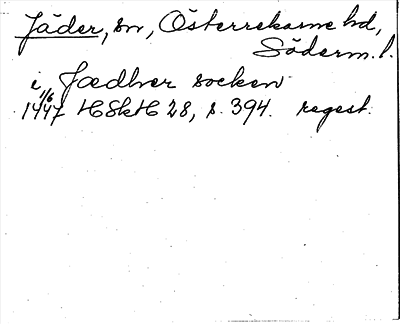 Jäder, sn, Österrekarne hd,
Söderm. l.
i Jædher socken
1/6
1447 HSkH 28, s. 394. regest.